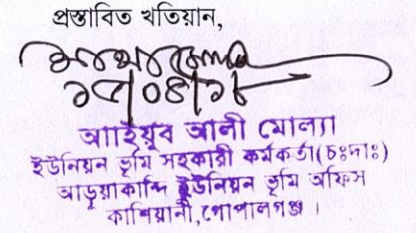 প্রস্তাবিত খতিয়ান,
১৫/০৪/১৮
আইয়ুব আলী মোল্যা
ইউনিয়ন ভূমি সহকারী কর্মকর্তা(চঃদাঃ)
আড়ুয়াকান্দি ইউনিয়ন ভূমি অফিস
কাশিয়ানী,গোপালগঞ্জ ।